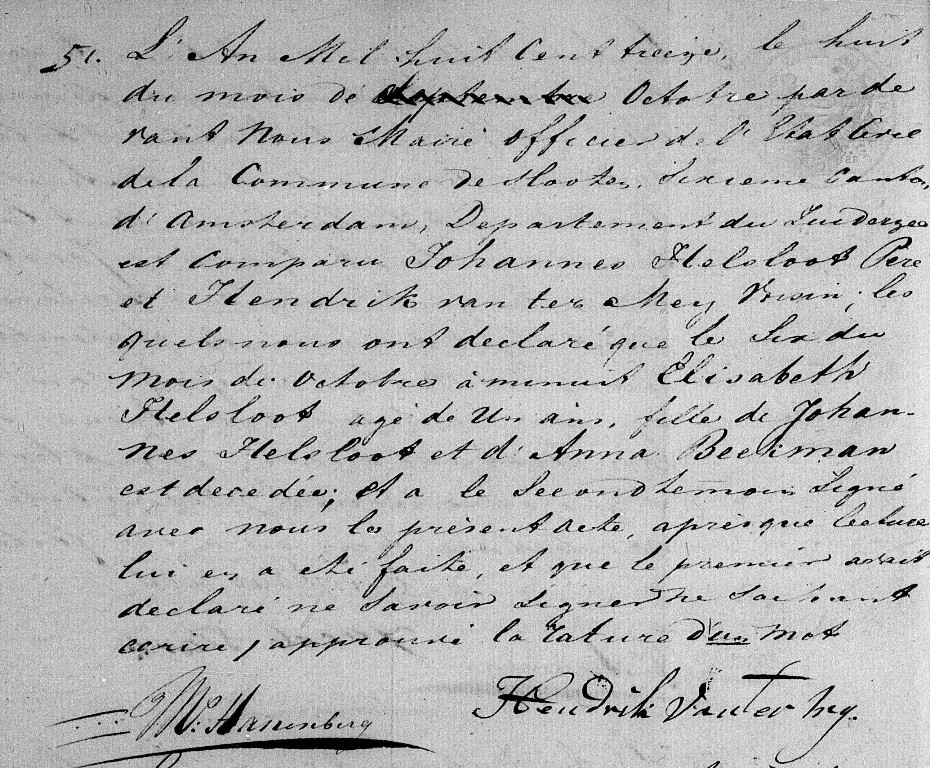 51. L'An Mil huit Cent treize, le huit
du mois de Septembre Octobre par de
vant Nous Maire officier de l'Etat Civil
de la Commune de Slooten, Sixieme Canton
d'Amsterdam, Departement du Zuiderzee
est Comparu Johannes Helsloot Pere
et Hendrik van ter Mey Voisin, les
quels nous ont declaré que le Six du
mois de Octobre à minuit Elisabeth
Helsloot agé de Un ans, fille de Johan-
nes Helsloot et d'Anna Beekman
est decedée; et a le Second temoin Signé
avec nous le présent acte, après que lecture
lui en a eté faite, et que le premier avait
declaré ne Savoir Signer ne Sachant
ecrire, approuvé la rature d'un mot
Hendrik Van ter Mey.